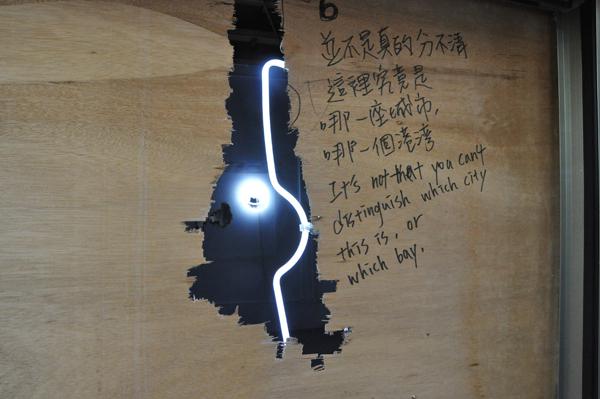 6
並不是真的分不清
這裡究竟是
哪一座城市,
哪一個港灣
It's not that you can't
distinguish which city
this is, or
which bay.